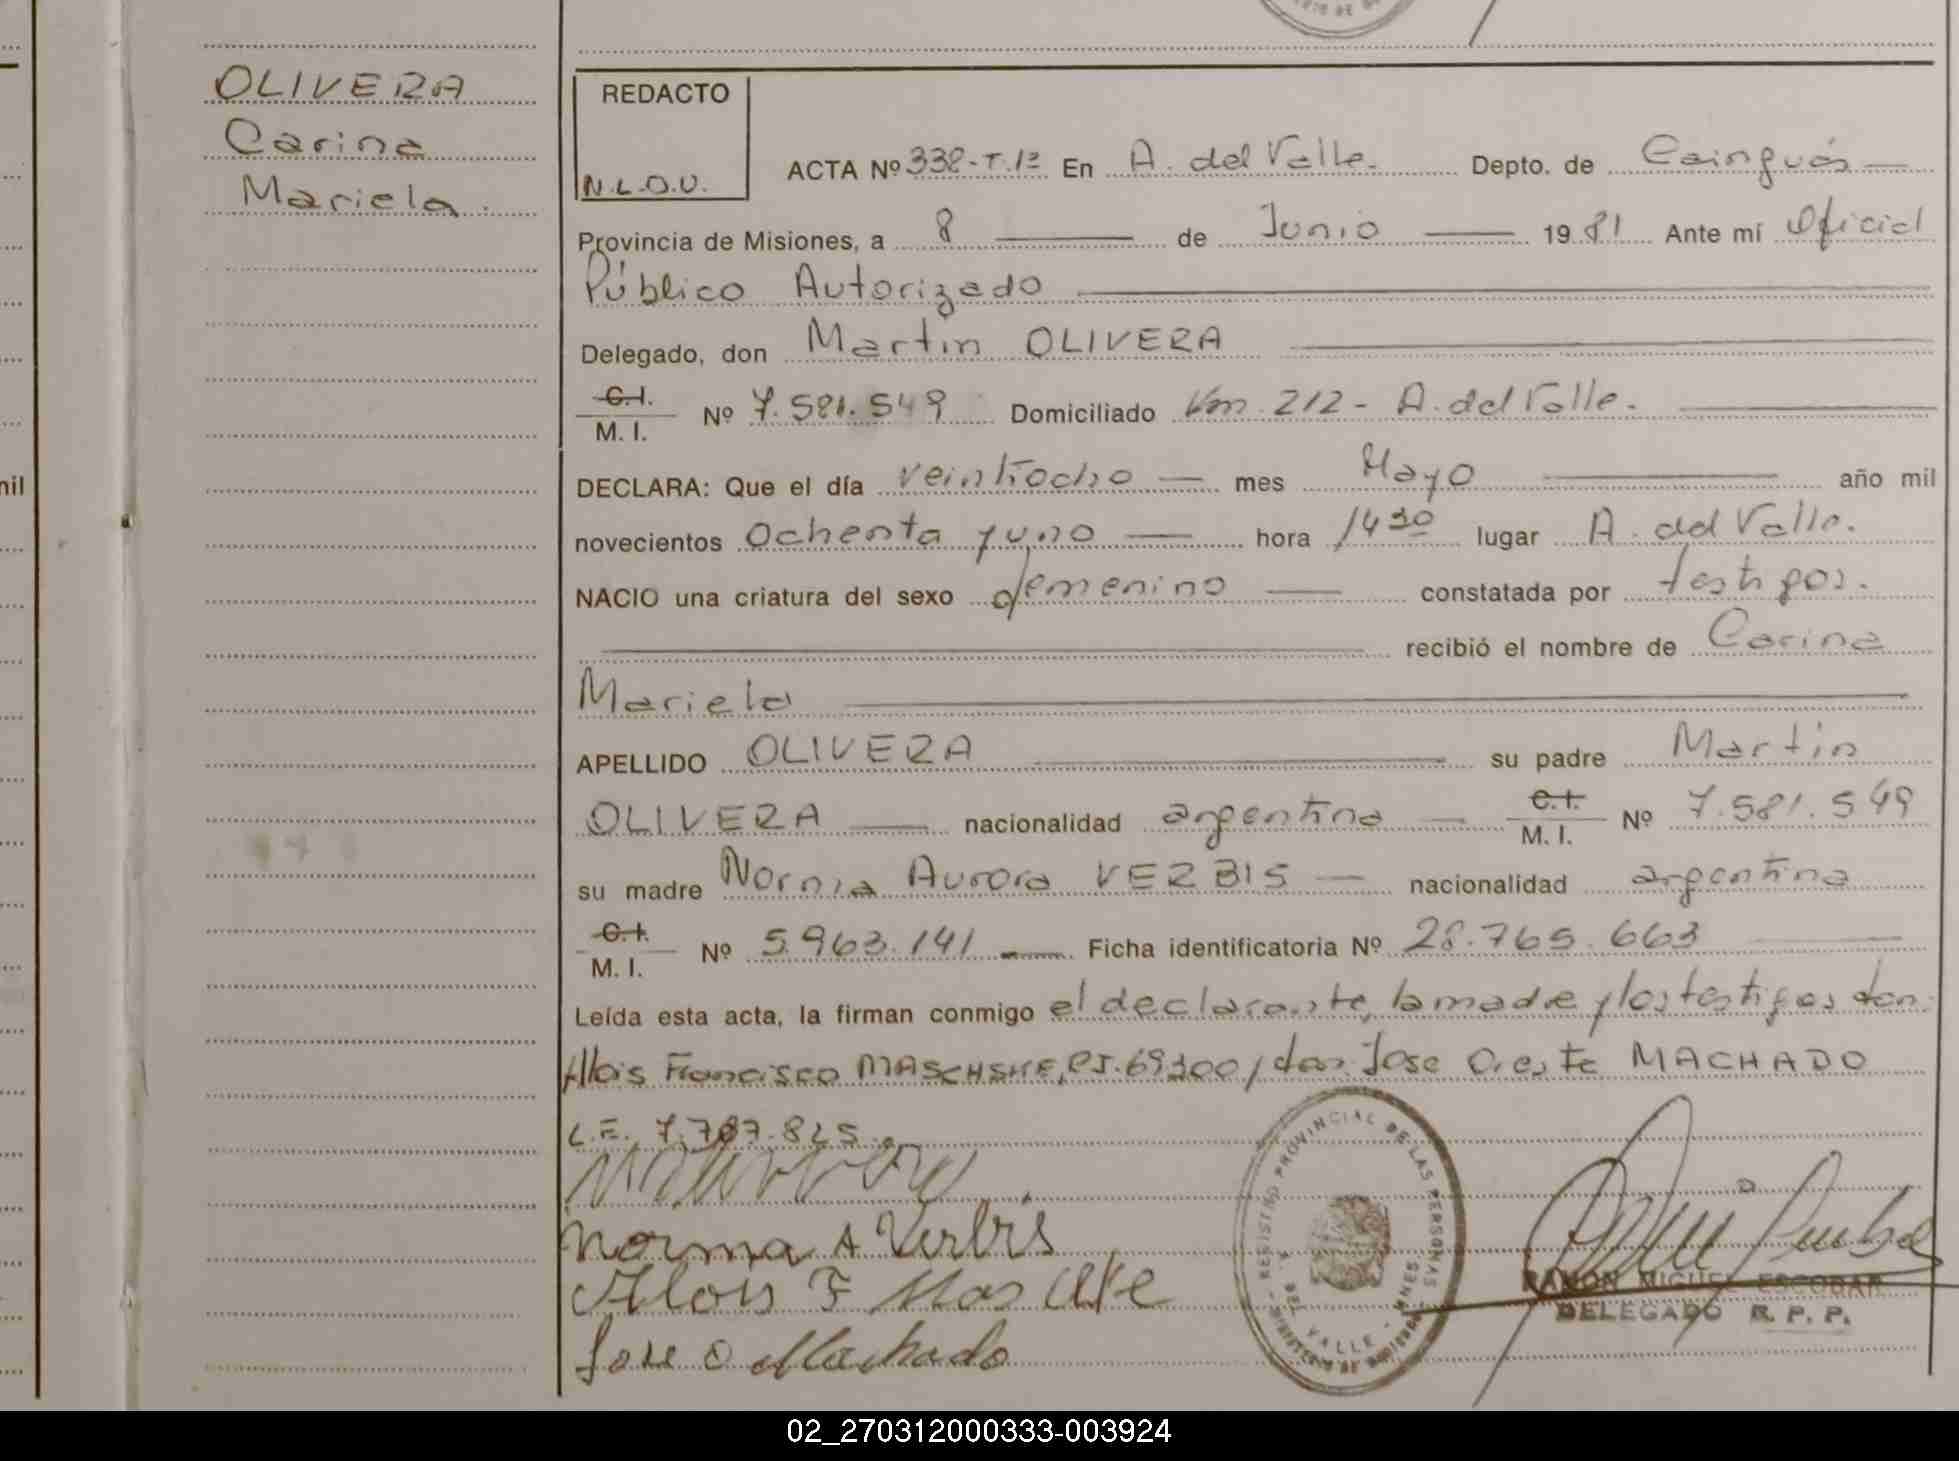 OLIVERA
Carina
Mariela
REDACTO
N.L.O.U.
ACTA Nº 338-T.1º En A. del Valle. Depto. de Cainguás
Provincia de Misiones, a 8 de Junio 1981 Ante mí Oficial
Público Autorizado
Delegado, don Martin OLIVERA
C.I.
M. I. Nº 7.581.549 Domiciliado Km. 212 - A. del Valle.
DECLARA: Que el día veintiocho mes Mayo año mil
novecientos ochenta y uno hora 14 30 lugar A. del Valle.
NACIO una criatura del sexo femenino constatada por testigos.
recibió el nombre de Carina
Mariela
APELLIDO OLIVERA su padre Martin
OLIVERA nacionalidad argentina C.I. M. I. Nº 7.581.549
su madre Norma Aurora VERBIS nacionalidad argentina
C.I.
M. I. Nº 5.963.141 Ficha identificatoria Nº 28.765.663
Leída esta acta, la firman conmigo el declarante, la madre y los testigos don:
Alois Francisco MASCHSKE, don Jose Oreste MACHADO
L.E. 7.787.825.
Norma A Verbis
Alois F Maschke
Jose O Machado
REGISTRO PROVINCIAL DE LAS PERSONAS
A. DEL VALLE - MNES.
MINISTERIO DE GOBIERNO
RAMON MIGUEL ESCOBAR
DELEGADO R. P. P.
nil
02_270312000333-003924